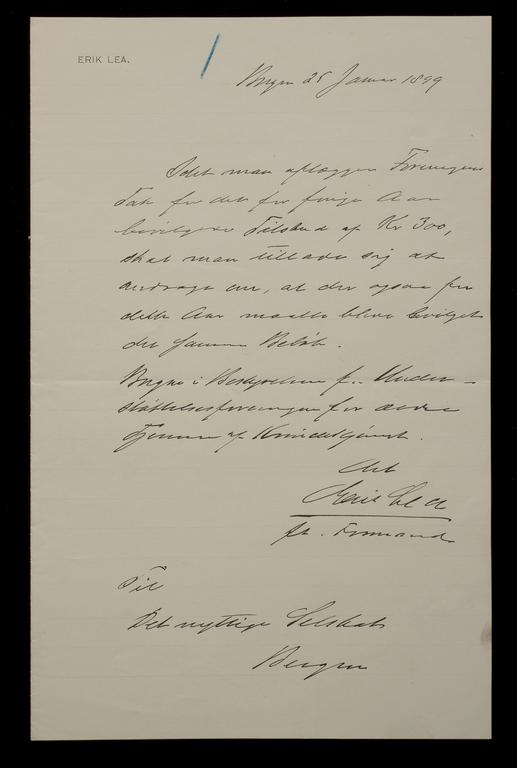 ERIK LEA.
Bergen 25 Januar 1899
Idet man aflægger Foreningens
Tak for det for forige Aar
bevilgede Tilskud af Kr 300,
skal man tillade sig at
andrage om, at der ogsaa for
dette Aar maatte blive bevilget
det samme Beløb.
Bergen i Bestyrelsen for Under-
støttelsesforeningen for ældre
af Kvindekjønnet.
Erik Lea
p.t. Formand
Til
Det nyttige Selskab
Bergen